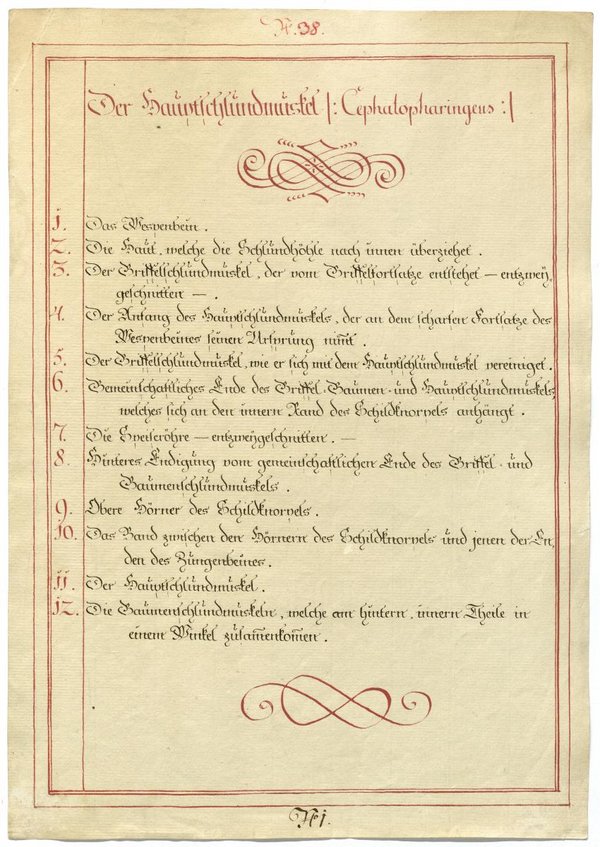 N. 38.
Der Hauptschlundmuskel |: Cephalopharingeus :|
1. Das Wespenbein.
2. Die Haut, welche die Schlundhöhle nach innen überziehet.
3. Der Griffelschlundmuskel, der vom Griffelfortsatze entstehet — entzwey
geschnitten —.
4. Der Anfang des Hauptschlundmuskels, der an dem scharfen Fortsatze des
Wespenbeines seinen Ursprung nim̅t.
5. Der Griffelschlundmuskel, wie er sich mit dem Hauptschlundmuskel vereiniget.
6. Gemeinschaftliches Ende des Griffel-Gaumen- und Hauptschlundmuskels,
welches sich an den innern Rand des Schildknorpels anhängt.
7. Die Speiseröhre — entzweygeschnitten. —
8. Hinteres Endigung vom gemeinschaftlichen Ende des Griffel- und
Gaumenschlundmuskels.
9. Obere Hörner des Schildknorpels.
10. Das Band zwischen den Hörnern des Schildknorpels und jenen der En,
den des Zungenbeines.
11. Der Hauptschlundmuskel.
12. Die Gaumenschlundmuskeln, welche am hintern, innern Theile in
einem Winkel zusam̅enkom̅en.
N. 1.